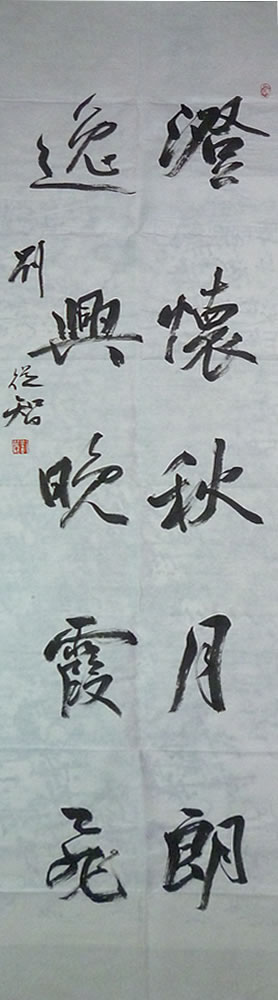 澄懷秋月朗
逸興晚霞飛
別從智